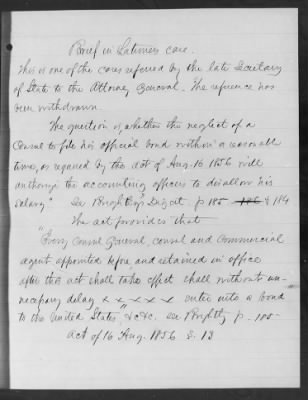 Brief in Latimers case.
This is one of the cases referred by the late Secretary
of State to the Attorney General. The reference has
been withdrawn.
The question is, whether the neglect of a
Consul to file his official bond within a reasonable
time, as required by the Act of Aug. 16 1856 will
authorize the accounting officers to disallow his
salary" See Brightly's Digest. p 185 & 184
The act provides that
"Every Consul General, consul and commercial
agent appointed before and retained in office
after this act shall take effect shall without un-
necessary delay x x x x x enter into a bond
to the United States," &c &c. see Brightly p. 185-
Act of 16 Aug. 1856 S. 13